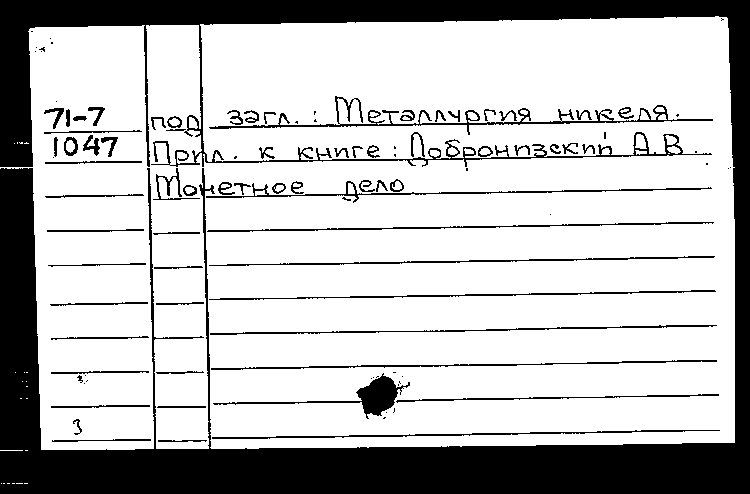 71-7 под загл.: Металлургия никеля.
1047 Прил. к книге: Добронизский А.В.
Монетное дело
3